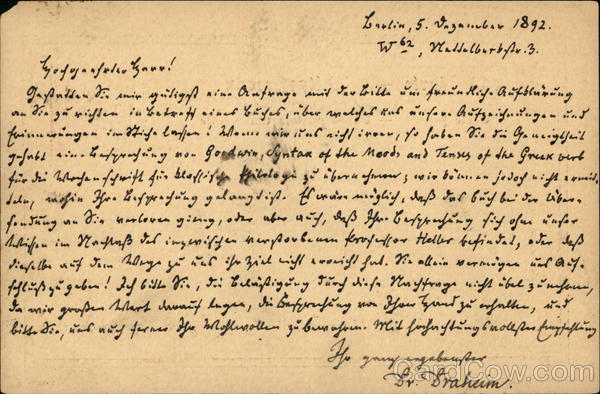 Berlin, 5. Dezember 1892.
W 62, Nettelbeckstr. 3.
Hochgeehrter Herr!
Gestatten Sie mir gütigst eine Anfrage mit der Bitte um freundliche Aufklärung
an Sie zu richten in Betreff eines Buches, über welches uns unsere Aufzeichnungen und
Erinnerungen im Stiche lassen! Wenn wir uns nicht irren, so haben Sie die Geneigtheit
gehabt eine Besprechung von Goodwin, Syntax of the Moods and Tenses of the Greek verb
für die Wochenschrift für klassische Philologie zu übernehmen; wir können jedoch nicht ermit-
teln, wohin Ihre Besprechung gelangt ist. Es wäre möglich, daß das Buch bei der Über-
sendung an Sie verloren ging, oder aber auch, daß Ihre Besprechung sich ohne unser
Wissen im Nachlaß des inzwischen verstorbenen Professor Heller befindet, oder daß
dieselbe auf dem Wege zu uns ihr Ziel nicht erreicht hat. Sie allein vermögen uns Auf-
schluß zu geben! Ich bitte Sie, die Belästigung durch diese Nachfrage nicht übel zu nehmen,
da wir großen Wert darauf legen, die Besprechung von Ihrer Hand zu erhalten, und
bitte Sie, uns auch ferner Ihr Wohlwollen zu bewahren. Mit hochachtungsvollster Empfehlung
Ihr ganz ergebenster
Dr. Draheim.
CardCow.com